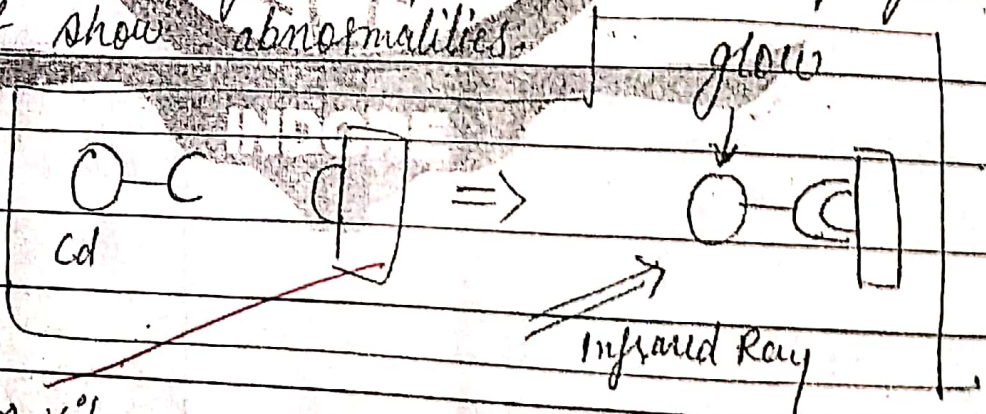 show abnormalities.
glow
Cd
=>
Infrared Ray